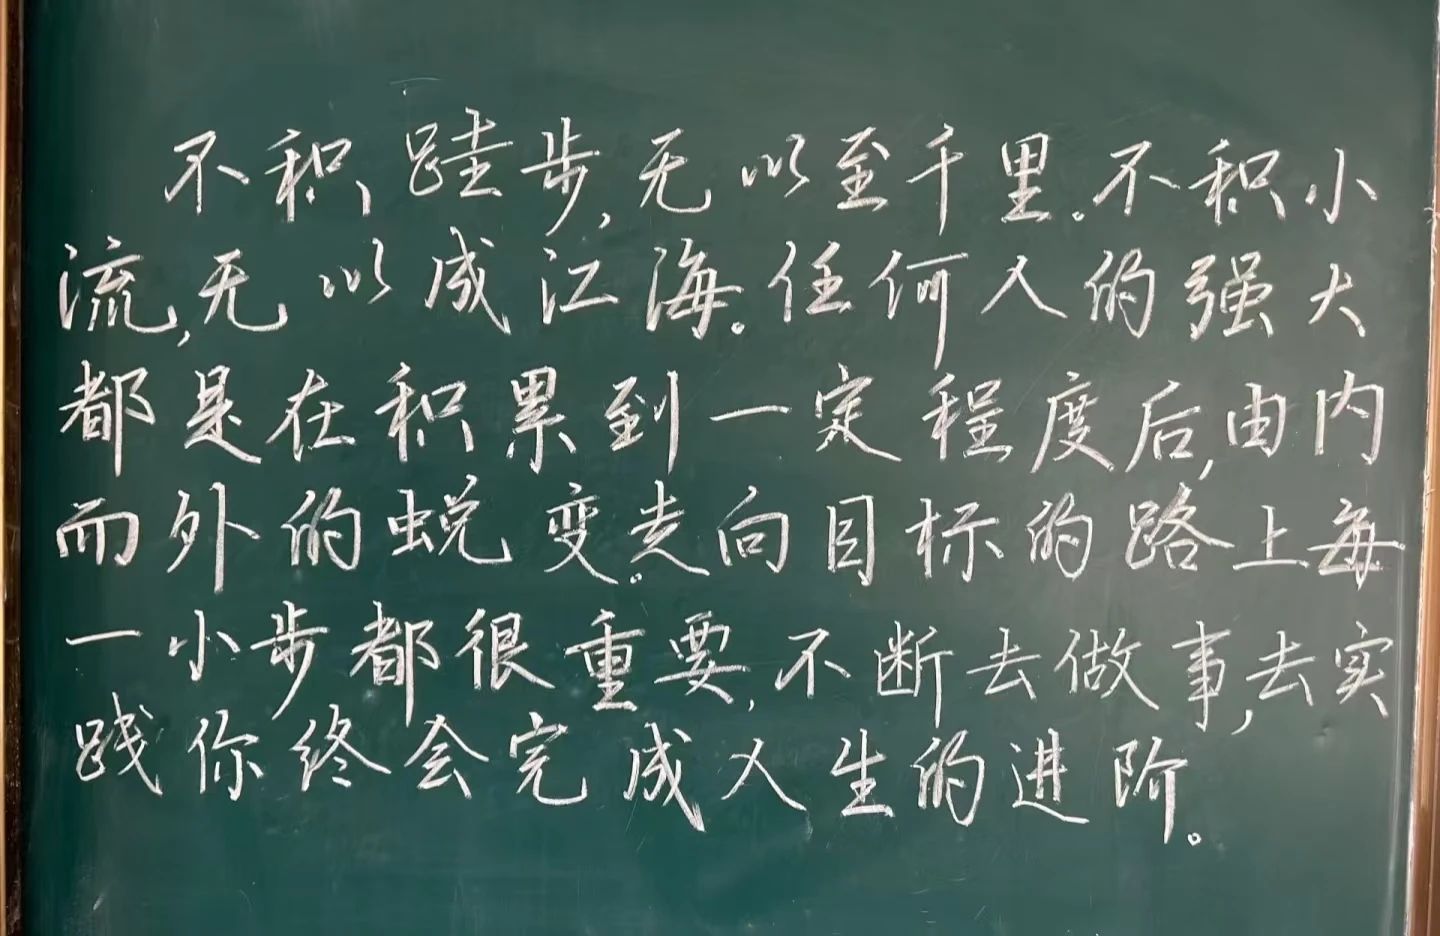 不积跬步,无以至千里。不积小
流,无以成江海。任何人的强大
都是在积累到一定程度后,由内
而外的蜕变。走向目标的路上每
一小步都很重要,不断去做事,去实
践你终会完成人生的进阶。